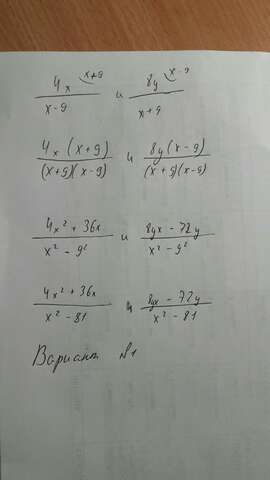 4x^(x+9) / (x-9) и 8y^(x-9) / (x+9)
4x(x+9) / (x+9)(x-9) и 8y(x-9) / (x+9)(x-9)
4x² + 36x / x² - 9² и 8yx - 72y / x² - 9²
4x² + 36x / x² - 81 и 8yx - 72y / x² - 81
Вариант №1